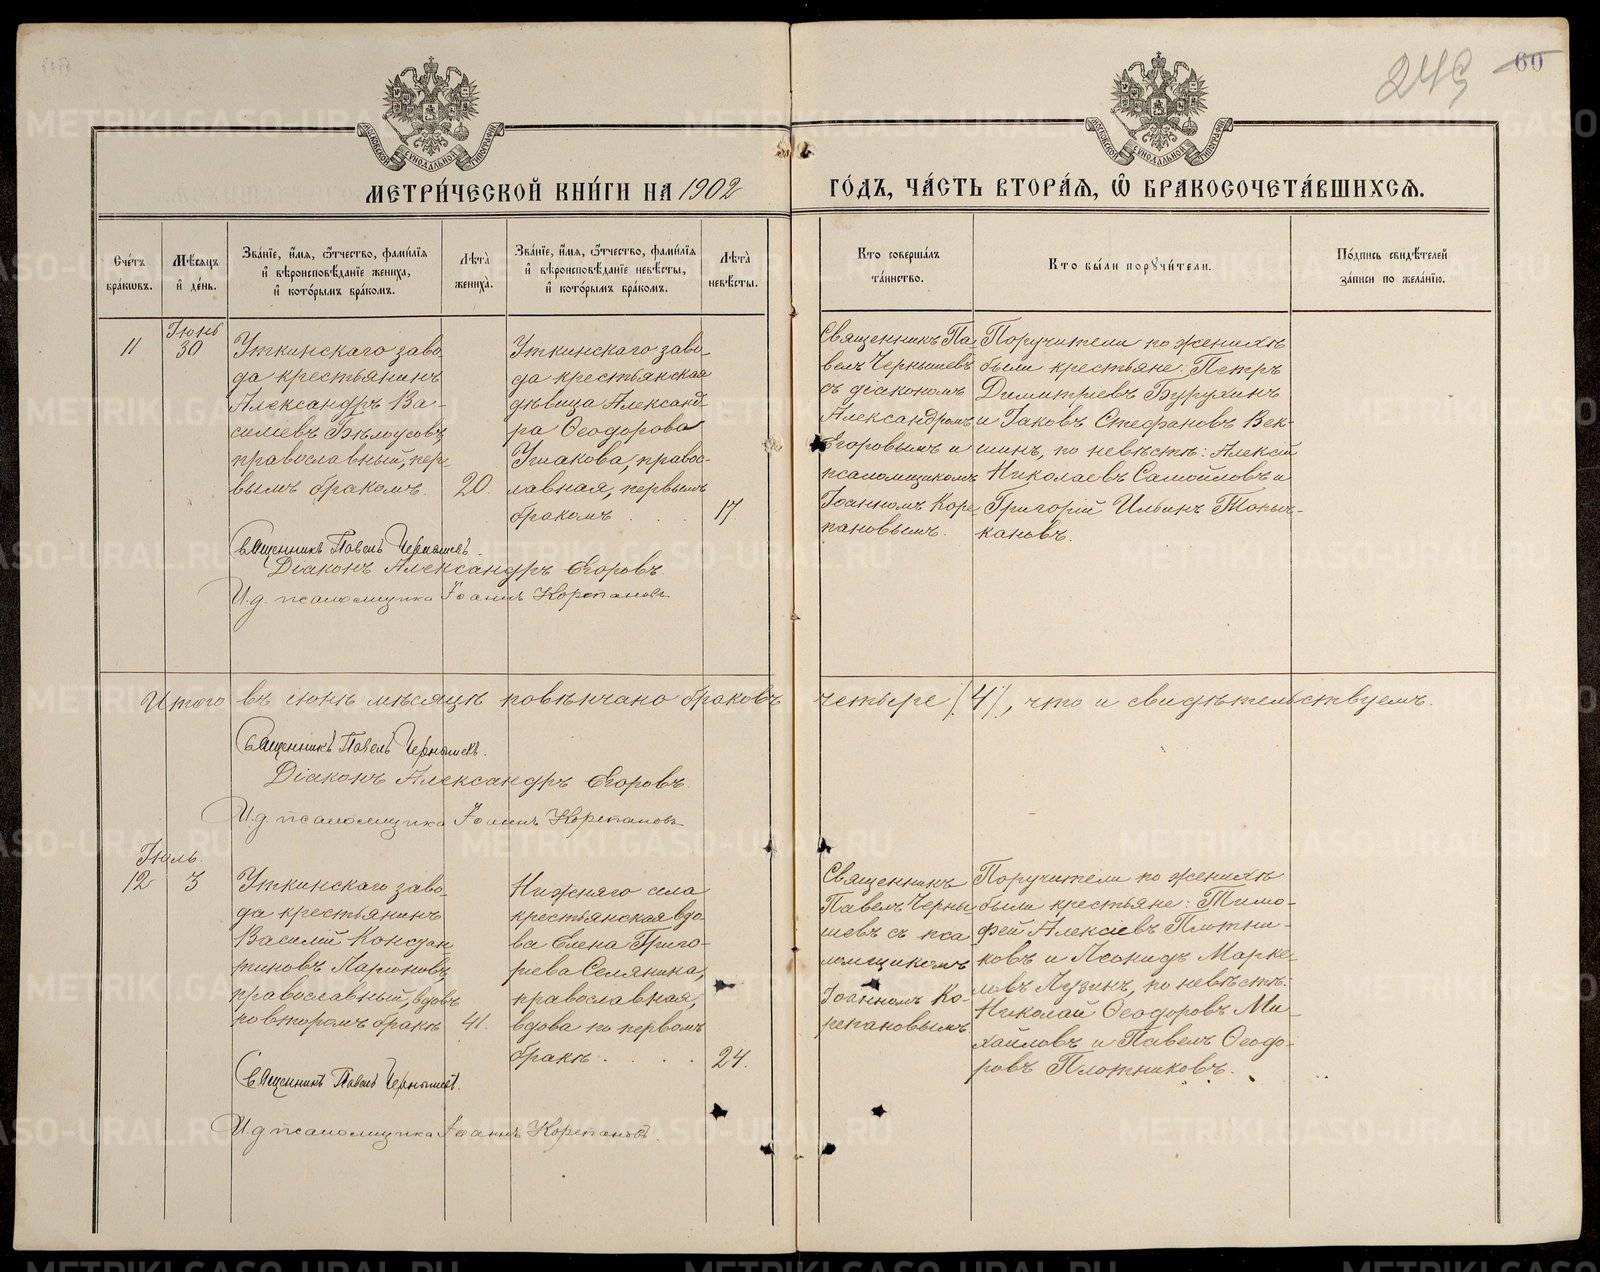 249 60
МЕТРИ́ЧЕСКОЙ КНИ́ГИ НА 1902 ГО́ДЪ, ЧА́СТЬ ВТОРА́Я, Ѡ҆ БРАКОСОЧЕТА́ВШИХСЯ.
Сче́тъ бра́кѡвъ.
Мѣ́сяцъ и҆ де́нь.
Зва́нїе, и҆́мя, ѻ҆́тчество, фами́лїя
и҆ вѣроисповѣ́данїе жениха̀,
и҆ кото́рымъ бра́комъ.
Лѣ́та̀ жениха̀.
Зва́нїе, и҆́мя, ѻ҆́тчество, фами́лїя
и҆ вѣроисповѣ́данїе невѣ́сты,
и҆ кото́рымъ бра́комъ.
Лѣ́та̀ невѣ́сты.
Кто̀ соверша́лъ та́инство.
Кто̀ бы́ли порꙋчи́тели.
По́дпись свидѣ́телей за́писи по жела́нїю.
11
Іюнь
30
Уткинскаго заво-
да крестьянинъ
Александръ Ва-
сильевъ Бѣлоусовъ,
православный, пер-
вымъ бракомъ.
20.
Уткинскаго заво-
да крестьянская
дѣвица Александ-
ра Ѳеодорова
Ушакова, правос-
лавная, первымъ
бракомъ . . .
17
Священникъ Па-
велъ Чернышевъ
съ діакономъ
Александромъ
Егоровымъ и
псаломщикомъ
Іоанномъ Коре-
пановымъ.
Поручители по женихѣ
были крестьяне: Петръ
Димитріевъ Бурухинъ
и Іаковъ Стефановъ Век-
шинъ, по невѣстѣ: Алексій
Николаевъ Самойловъ и
Григорій Ильинъ Топыч-
кановъ.
Священникъ Павелъ Чернышевъ.
Діаконъ Александръ Егоровъ.
И. д. псаломщика Іоаннъ Корепановъ
Итого въ іюнѣ мѣсяцѣ повѣнчано браковъ четыре (4), что и свидѣтельствуемъ.
Священникъ Павелъ Чернышевъ.
Діаконъ Александръ Егоровъ.
И. д. псаломщика Іоаннъ Корепановъ
Іюль.
12
3
Уткинскаго заво-
да крестьянинъ
Василій Констан-
тиновъ Ларіоновъ,
православный, вдовъ
по второмъ бракѣ
41.
Нижняго села
крестьянская вдо-
ва Елена Григо-
рьева Селянина,
православная,
вдова по первомъ
бракѣ . . . .
24.
Священникъ
Павелъ Черны-
шевъ съ пса-
ломщикомъ
Іоанномъ Ко-
репановымъ
Поручители по женихѣ
были крестьяне: Тимо-
фей Алексіевъ Плотни-
ковъ и Леонидъ Марке-
ловъ Лузинъ, по невѣстѣ:
Николай Ѳеодоровъ Ми-
хайловъ и Павелъ Ѳеодо-
ровъ Плотниковъ.
Священникъ Павелъ Чернышевъ.
И. д. псаломщика Іоаннъ Корепановъ.
METRIKI.GASO-URAL.RU